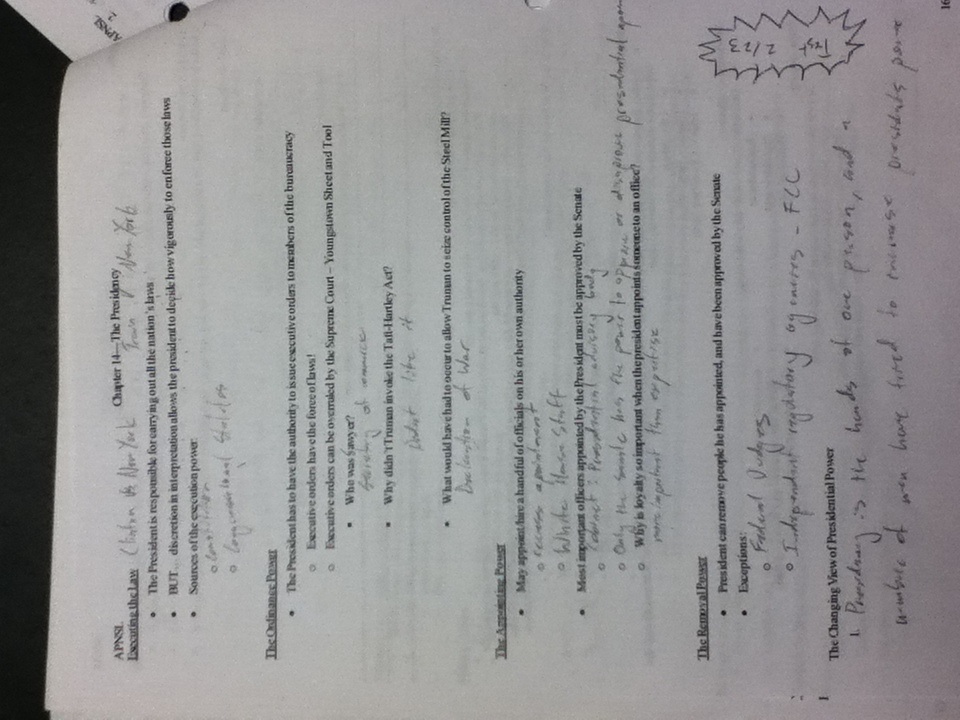 APNSL
2
APNSL Chapter 14—The Presidency
Executing the Law Clinton vs New York Train v New York
• The President is responsible for carrying out all the nation's laws
• BUT... discretion in interpretation allows the president to decide how vigorously to enforce those laws
• Sources of the execution power:
o Constitution
o Congressional Statutes
The Ordinance Power
• The President has to have the authority to issue executive orders to members of the bureaucracy
o Executive orders have the force of laws!
o Executive orders can be overruled by the Supreme Court – Youngstown Sheet and Tool
▪ Who was Sawyer?
Secretary of commerce
▪ Why didn't Truman invoke the Taft-Hartley Act?
Didn't like it
▪ What would have had to occur to allow Truman to seize control of the Steel Mill?
Declaration of War
The Appointing Power
• May appoint/hire a handful of officials on his or her own authority
o recess apointment
o White House Staff
• Most important officers appointed by the President must be approved by the Senate
o Cabinet: Presidential advisory body
o Only the senate has the power to or presidential
o Why is loyalty so important when the president appoints someone to an office?
more important than expertise
The Removal Power
• President can remove people he has appointed, and have been approved by the Senate
• Exceptions:
o Federal Judges
o Independent regulatory agencies - FCC
Test 2/23
The Changing View of Presidential Power
1. Presidency is the hands of one person, and a
number of men have tried to increase presidents
16